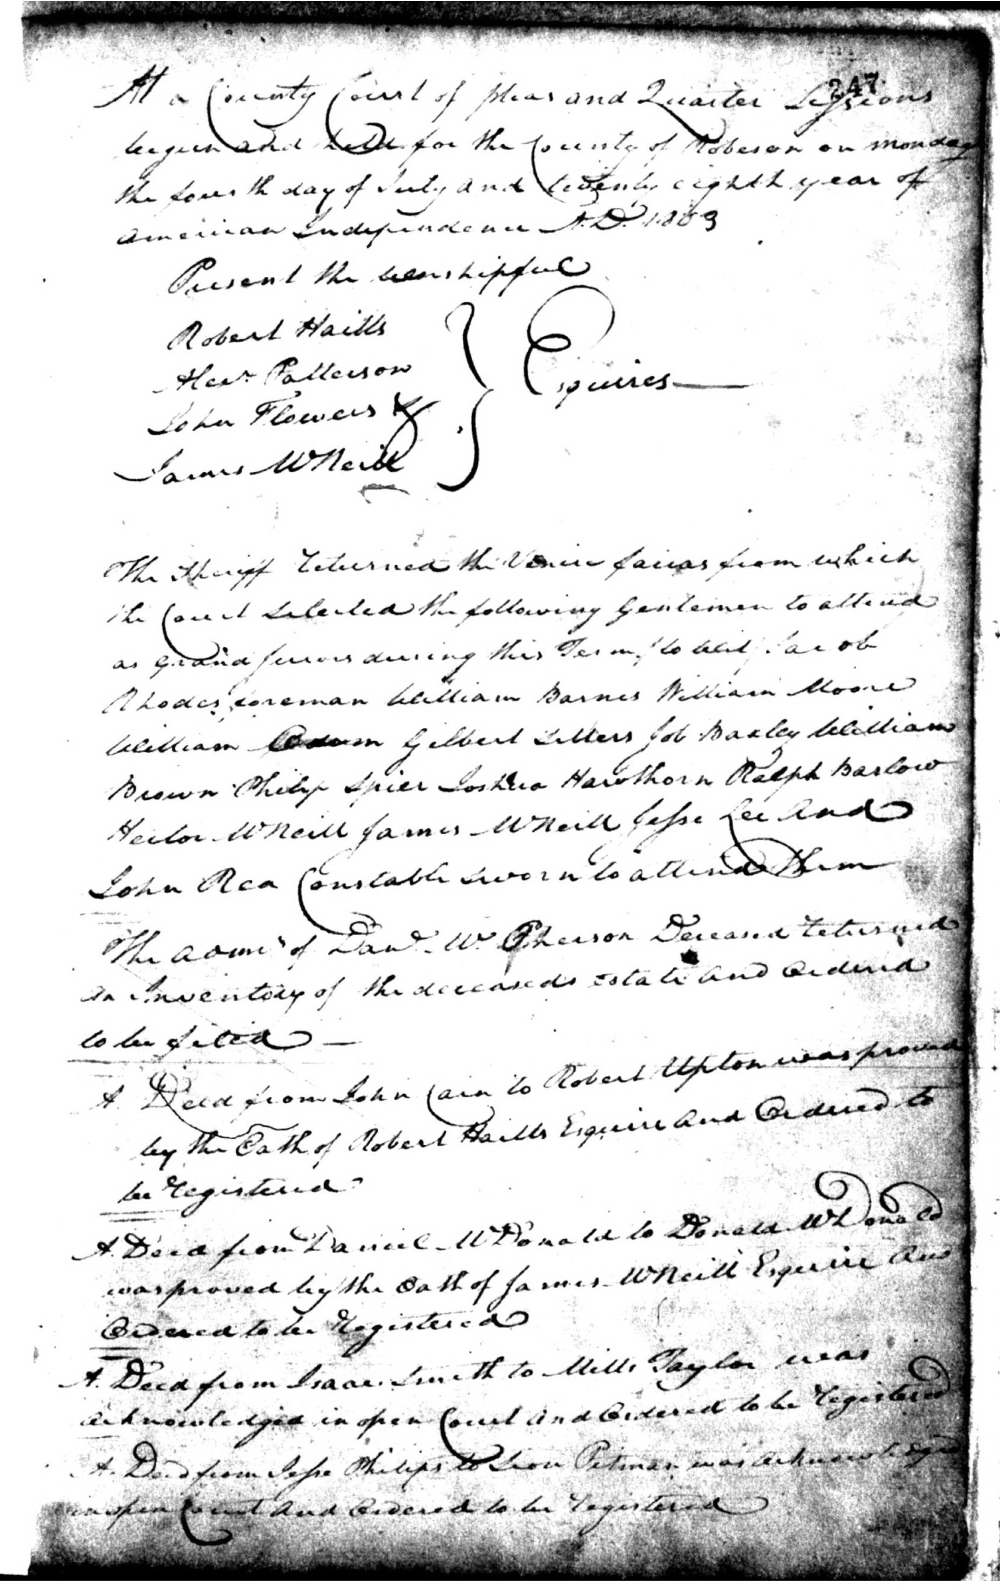 247
At a County Court of pleas and Quarter Sessions
begun and held for the County of Robeson on monday
the fourth day of July and twenty eighth year of
American Independence A.D. 1803
Present the worshipful
Robert Haills
Alexr Patterson
John Flowers &
James McNeill
Esquires
The Sheriff returned the Venire facias from which
the Court selected the following Gentlemen to attend
as grand jurors during this Term, to wit, Jacob
Rhodes foreman William Barnes William Moore
William Odom Gilbert Sellers Job Baxley William
Brown Philip Spier Joshua Hawthorn Ralph Barlow
Hector McNeill James McNeill Jesse Lee And
John Rea Constable sworn to attend them
The admrs of Danl. Mc Pherson Deceased returned
an Inventory of the deceaseds estate and ordered
to be filed
A Deed from John Cain to Robert Upton was proved
by the Oath of Robert Haills Esquire and Ordered to
be registered
A Deed from Daniel McDonald to Donald McDonald
was proved by the Oath of James McNeill Esquire And
Ordered to be Registered
A Deed from Isaac Smith to Mills Taylor was
acknowledged in open Court and Ordered to be Registered
A Deed from Jesse Philips to Pitman was acknowledged
in open Court And Ordered to be registered